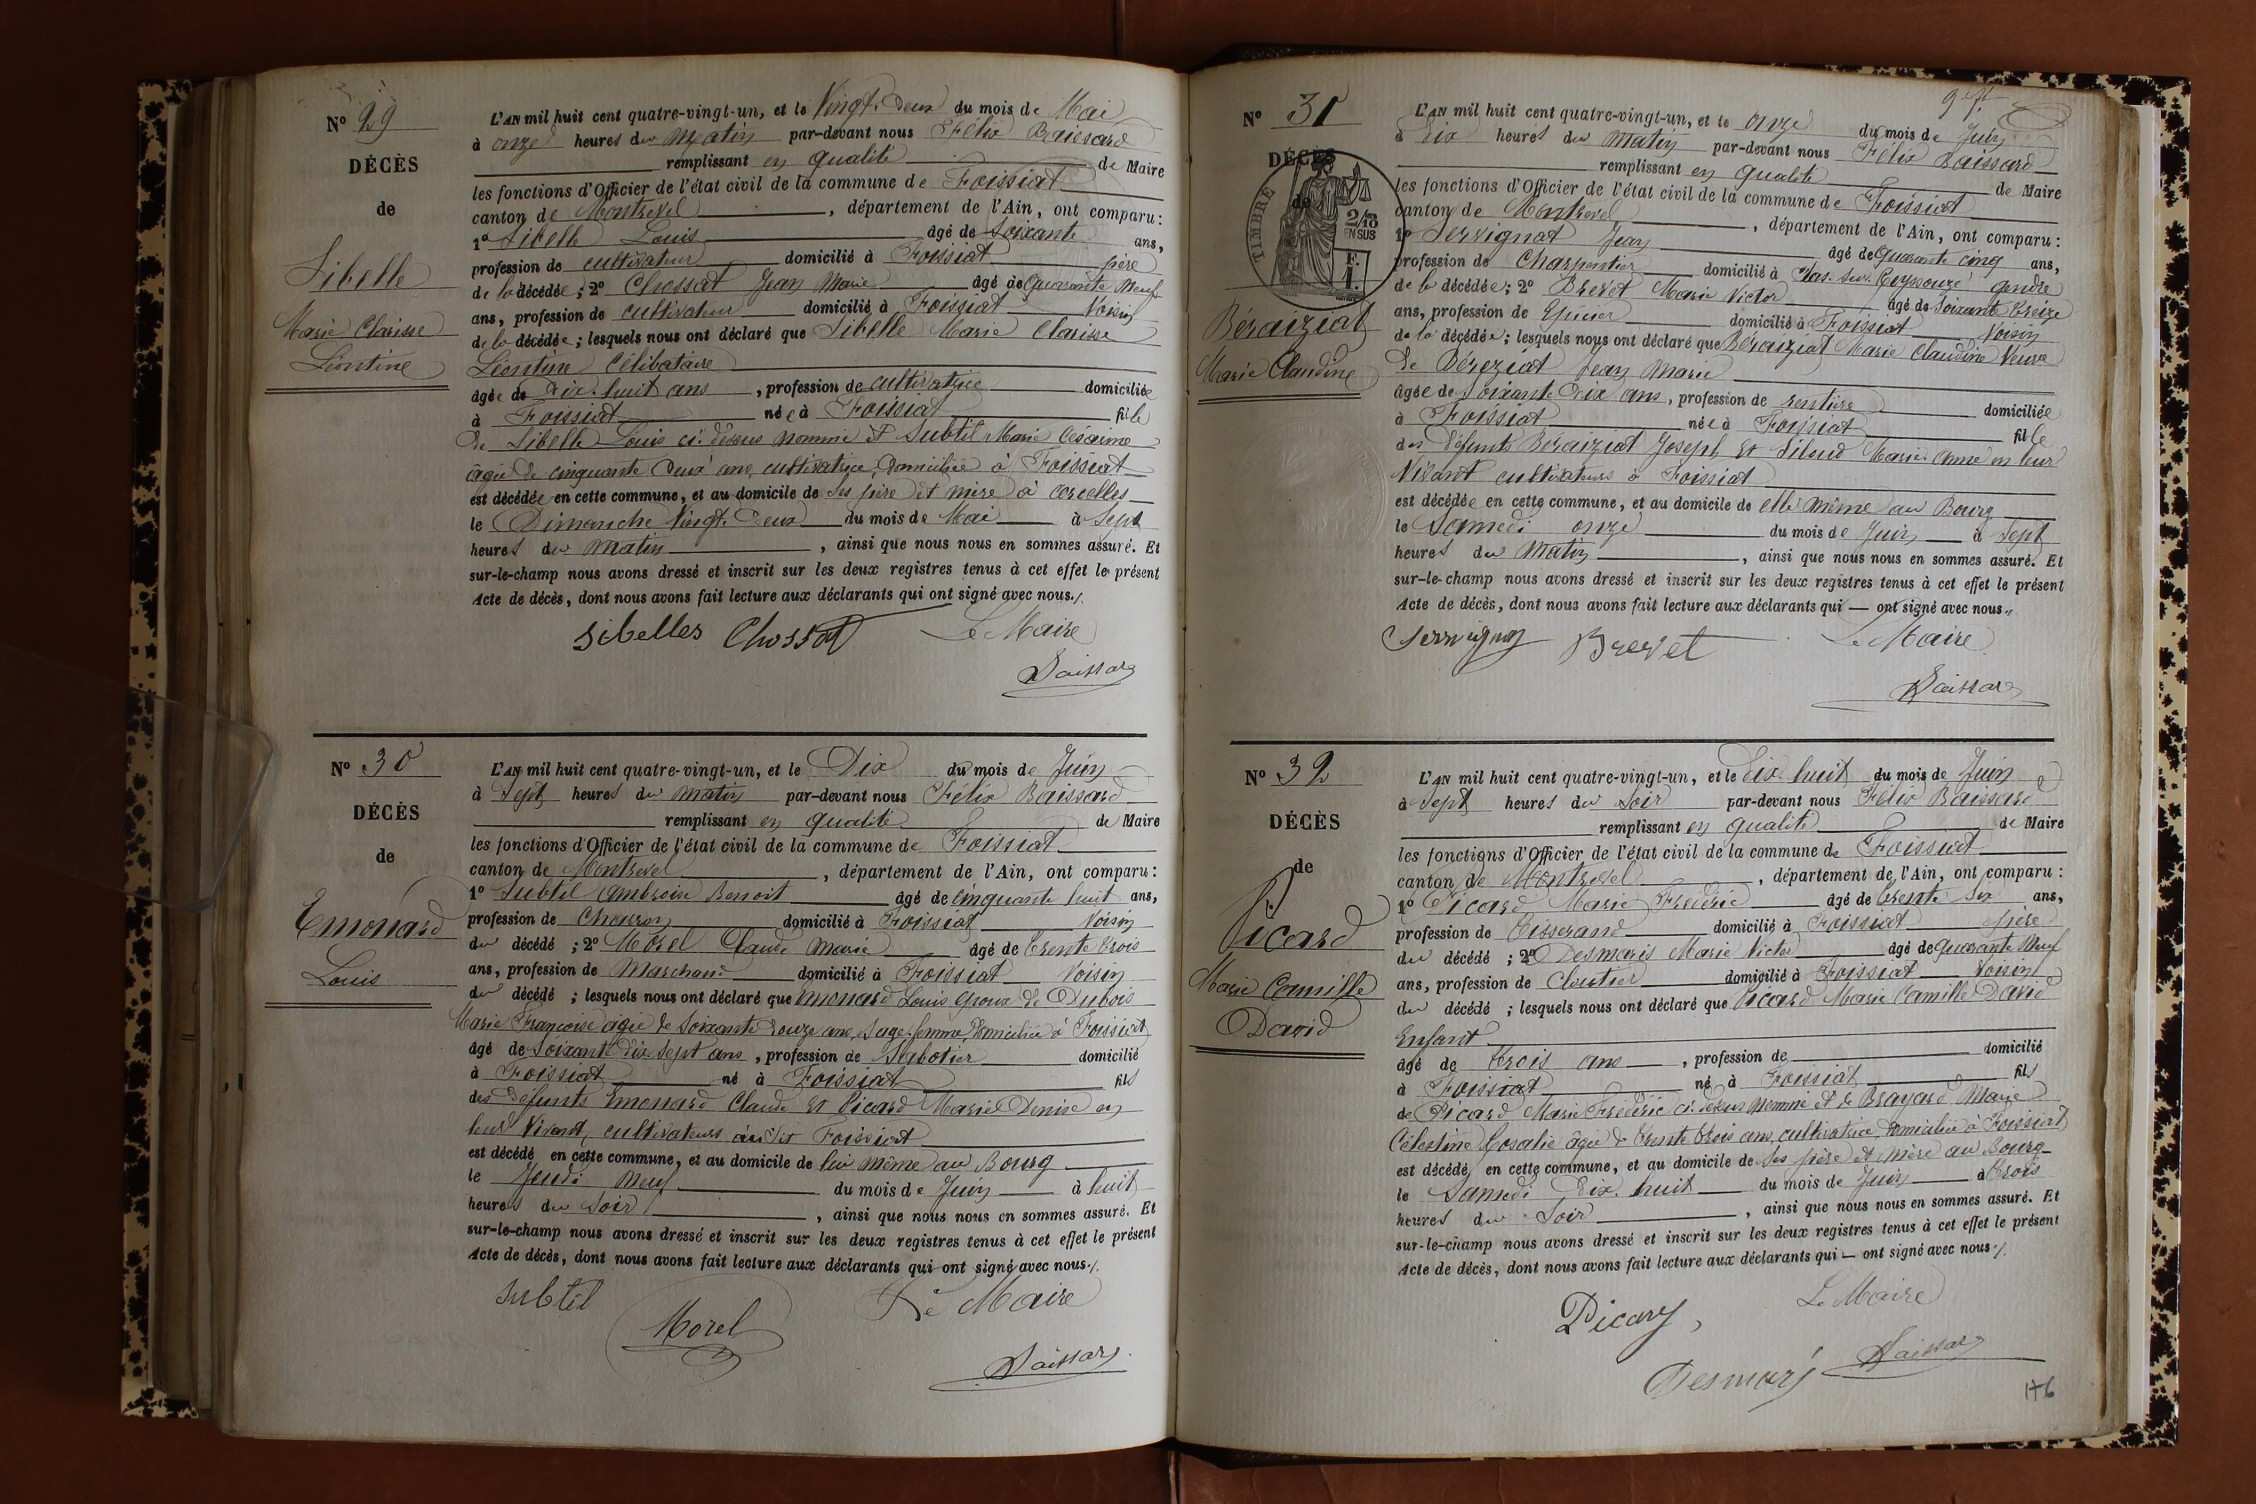 N° 29
DÉCÈS
de
Sibelle
Marie Clarisse
Léontine
L'AN mil huit cent quatre-vingt-un, et le Vingt-Deux du mois de Mai
à onze heures du Matin par-devant nous Félix Baissard
remplissant en qualité de Maire
les fonctions d'Officier de l'état civil de la commune de Foissiat
canton de Montrevel, département de l'Ain, ont comparu:
1° Sibelle Louis âgé de Soixante ans,
profession de cultivateur domicilié à Foissiat père
de la décédée; 2° Chossat Jean Marie âgé de Quarante Neuf
ans, profession de cultivateur domicilié à Foissiat Voisin
de la décédée; lesquels nous ont déclaré que Sibelle Marie Clarisse
Léontine Célibataire
âgée de Dix-huit ans, profession de cultivatrice domiciliée
à Foissiat née à Foissiat fille
de Sibelle Louis ci-dessus nommé et Subtil Marie Césaime
âgée de cinquante Deux ans, cultivatrice, Domiciliée à Foissiat
est décédée en cette commune, et au domicile de Ses père et mère à Corcelles
le Dimanche Vingt-Deux du mois de Mai à Sept
heures du Matin, ainsi que nous nous en sommes assuré. Et
sur-le-champ nous avons dressé et inscrit sur les deux registres tenus à cet effet le présent
Acte de décès, dont nous avons fait lecture aux déclarants qui ont signé avec nous./.
Sibelles Chossat Le Maire
Baissard
N° 30
DÉCÈS
de
Emonard
Louis
L'AN mil huit cent quatre-vingt-un, et le Dix du mois de Juin
à Sept heures du Matin par-devant nous Félix Baissard
remplissant en qualité de Maire
les fonctions d'Officier de l'état civil de la commune de Foissiat
canton de Montrevel, département de l'Ain, ont comparu:
1° Subtil Ambroise Benoit âgé de Cinquante huit ans,
profession de Charron domicilié à Foissiat Voisin
du décédé; 2° Morel Claude Marie âgé de Trente trois
ans, profession de Marchand domicilié à Foissiat Voisin
du décédé; lesquels nous ont déclaré que Emonard Louis époux de Dubois
Marie Françoise âgée de Soixante Douze ans, Sage-femme, Domiciliée à Foissiat
âgé de Soixante Dix Sept ans, profession de Sabotier domicilié
à Foissiat né à Foissiat fils
des Défunts Emonard Claude et Picard Marie Denise en
leur Vivant, cultivateurs audit Foissiat
est décédé en cette commune, et au domicile de lui même au Bourg
le Jeudi Neuf du mois de Juin à huit
heures du Soir, ainsi que nous nous en sommes assuré. Et
sur-le-champ nous avons dressé et inscrit sur les deux registres tenus à cet effet le présent
Acte de décès, dont nous avons fait lecture aux déclarants qui ont signé avec nous./.
Subtil Morel Le Maire
Baissard
N° 31
DÉCÈS
de
TIMBRE
2/10
EN SUS
Béraiziat
Marie Claudine
L'AN mil huit cent quatre-vingt-un, et le onze du mois de Juin
à Dix heures du Matin par-devant nous Félix Baissard
remplissant en qualité de Maire
les fonctions d'Officier de l'état civil de la commune de Foissiat
canton de Montrevel, département de l'Ain, ont comparu:
1° Servignat Jean âgé de Quarante cinq ans,
profession de Charpentier domicilié à Jayat-sur-Reyssouze gendre
de la décédée; 2° Brevet Marie Victor âgé de Soixante Treize
ans, profession de Epicier domicilié à Foissiat Voisin
de la décédée; lesquels nous ont déclaré que Béraiziat Marie Claudine Veuve
de Béréziat Jean Marie
âgée de Soixante Dix ans, profession de rentière domiciliée
à Foissiat née à Foissiat fille
des Défunts Béraiziat Joseph et Siloud Marie Anne en leur
Vivant cultivateurs à Foissiat
est décédée en cette commune, et au domicile de elle même au Bourg
le Samedi onze du mois de Juin à Sept
heures du Matin, ainsi que nous nous en sommes assuré. Et
sur-le-champ nous avons dressé et inscrit sur les deux registres tenus à cet effet le présent
Acte de décès, dont nous avons fait lecture aux déclarants qui — ont signé avec nous.
Servignat Brevet Le Maire
Baissard
N° 32
DÉCÈS
de
Picard
Marie Camille
David
L'AN mil huit cent quatre-vingt-un, et le Dix-huit du mois de Juin
à Sept heures du Soir par-devant nous Félix Baissard
remplissant en qualité de Maire
les fonctions d'Officier de l'état civil de la commune de Foissiat
canton de Montrevel, département de l'Ain, ont comparu:
1° Picard Marie Frédéric âgé de Trente Six ans,
profession de Tisserand domicilié à Foissiat père
du décédé; 2° Desmaris Marie Victor âgé de Quarante Neuf
ans, profession de Cloutier domicilié à Foissiat Voisin
du décédé; lesquels nous ont déclaré que Picard Marie Camille David
Enfant
âgé de Trois ans, profession de domicilié
à Foissiat né à Foissiat fils
de Picard Marie Frédéric ci-dessus nommé et de Brayard Marie
Célestine Rosalie âgée de Trente Trois ans, cultivatrice, Domiciliée à Foissiat
est décédé en cette commune, et au domicile de Ses père et mère au Bourg
le Samedi Dix-huit du mois de Juin à Trois
heures du Soir, ainsi que nous nous en sommes assuré. Et
sur-le-champ nous avons dressé et inscrit sur les deux registres tenus à cet effet le présent
Acte de décès, dont nous avons fait lecture aux déclarants qui — ont signé avec nous./.
Picard Le Maire
Desmaris Baissard
176